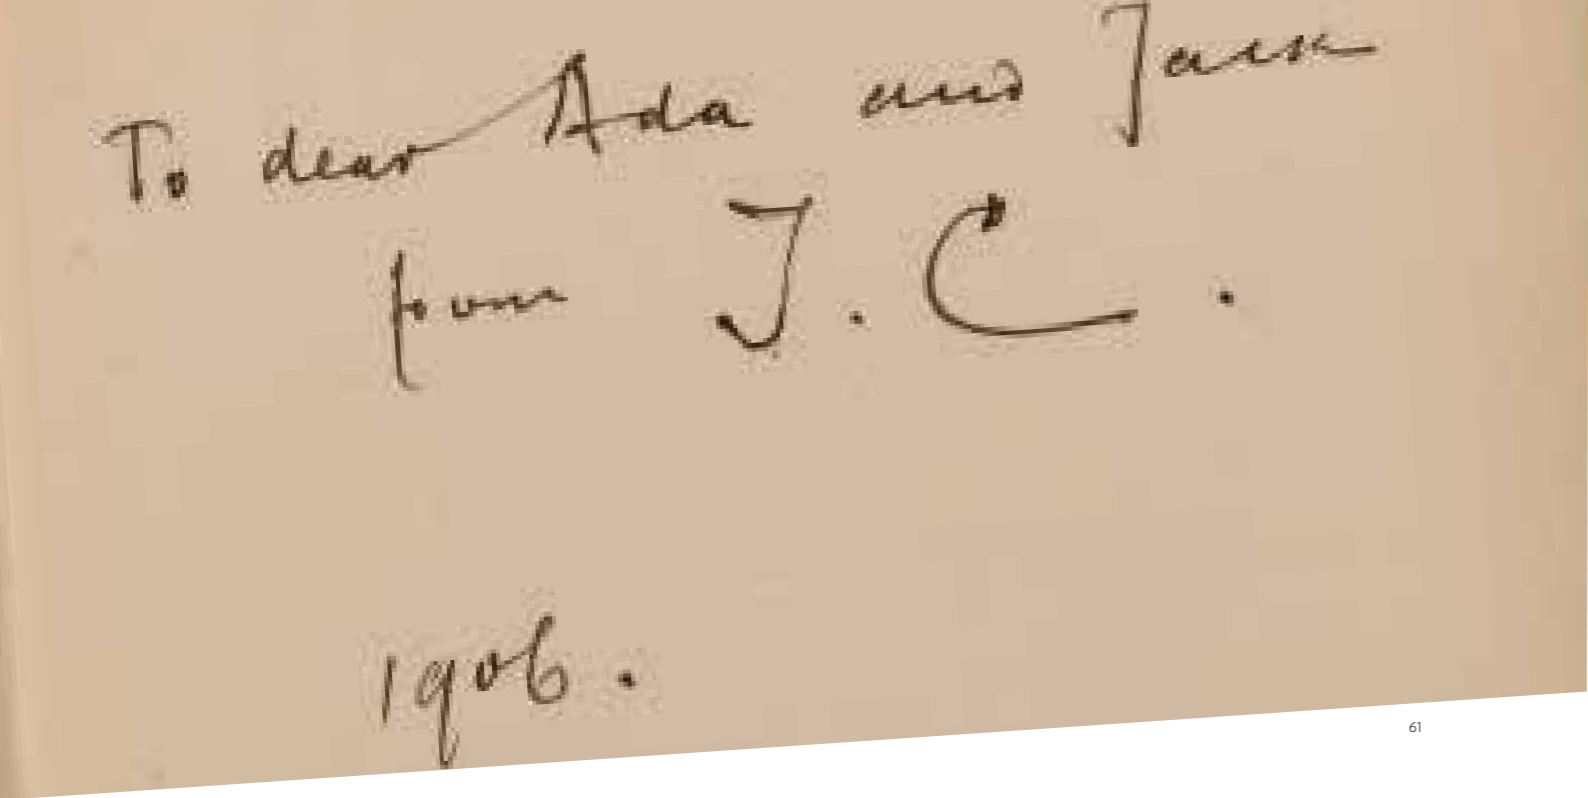 To dear Ada and Jack
from J. C.
1906.
61